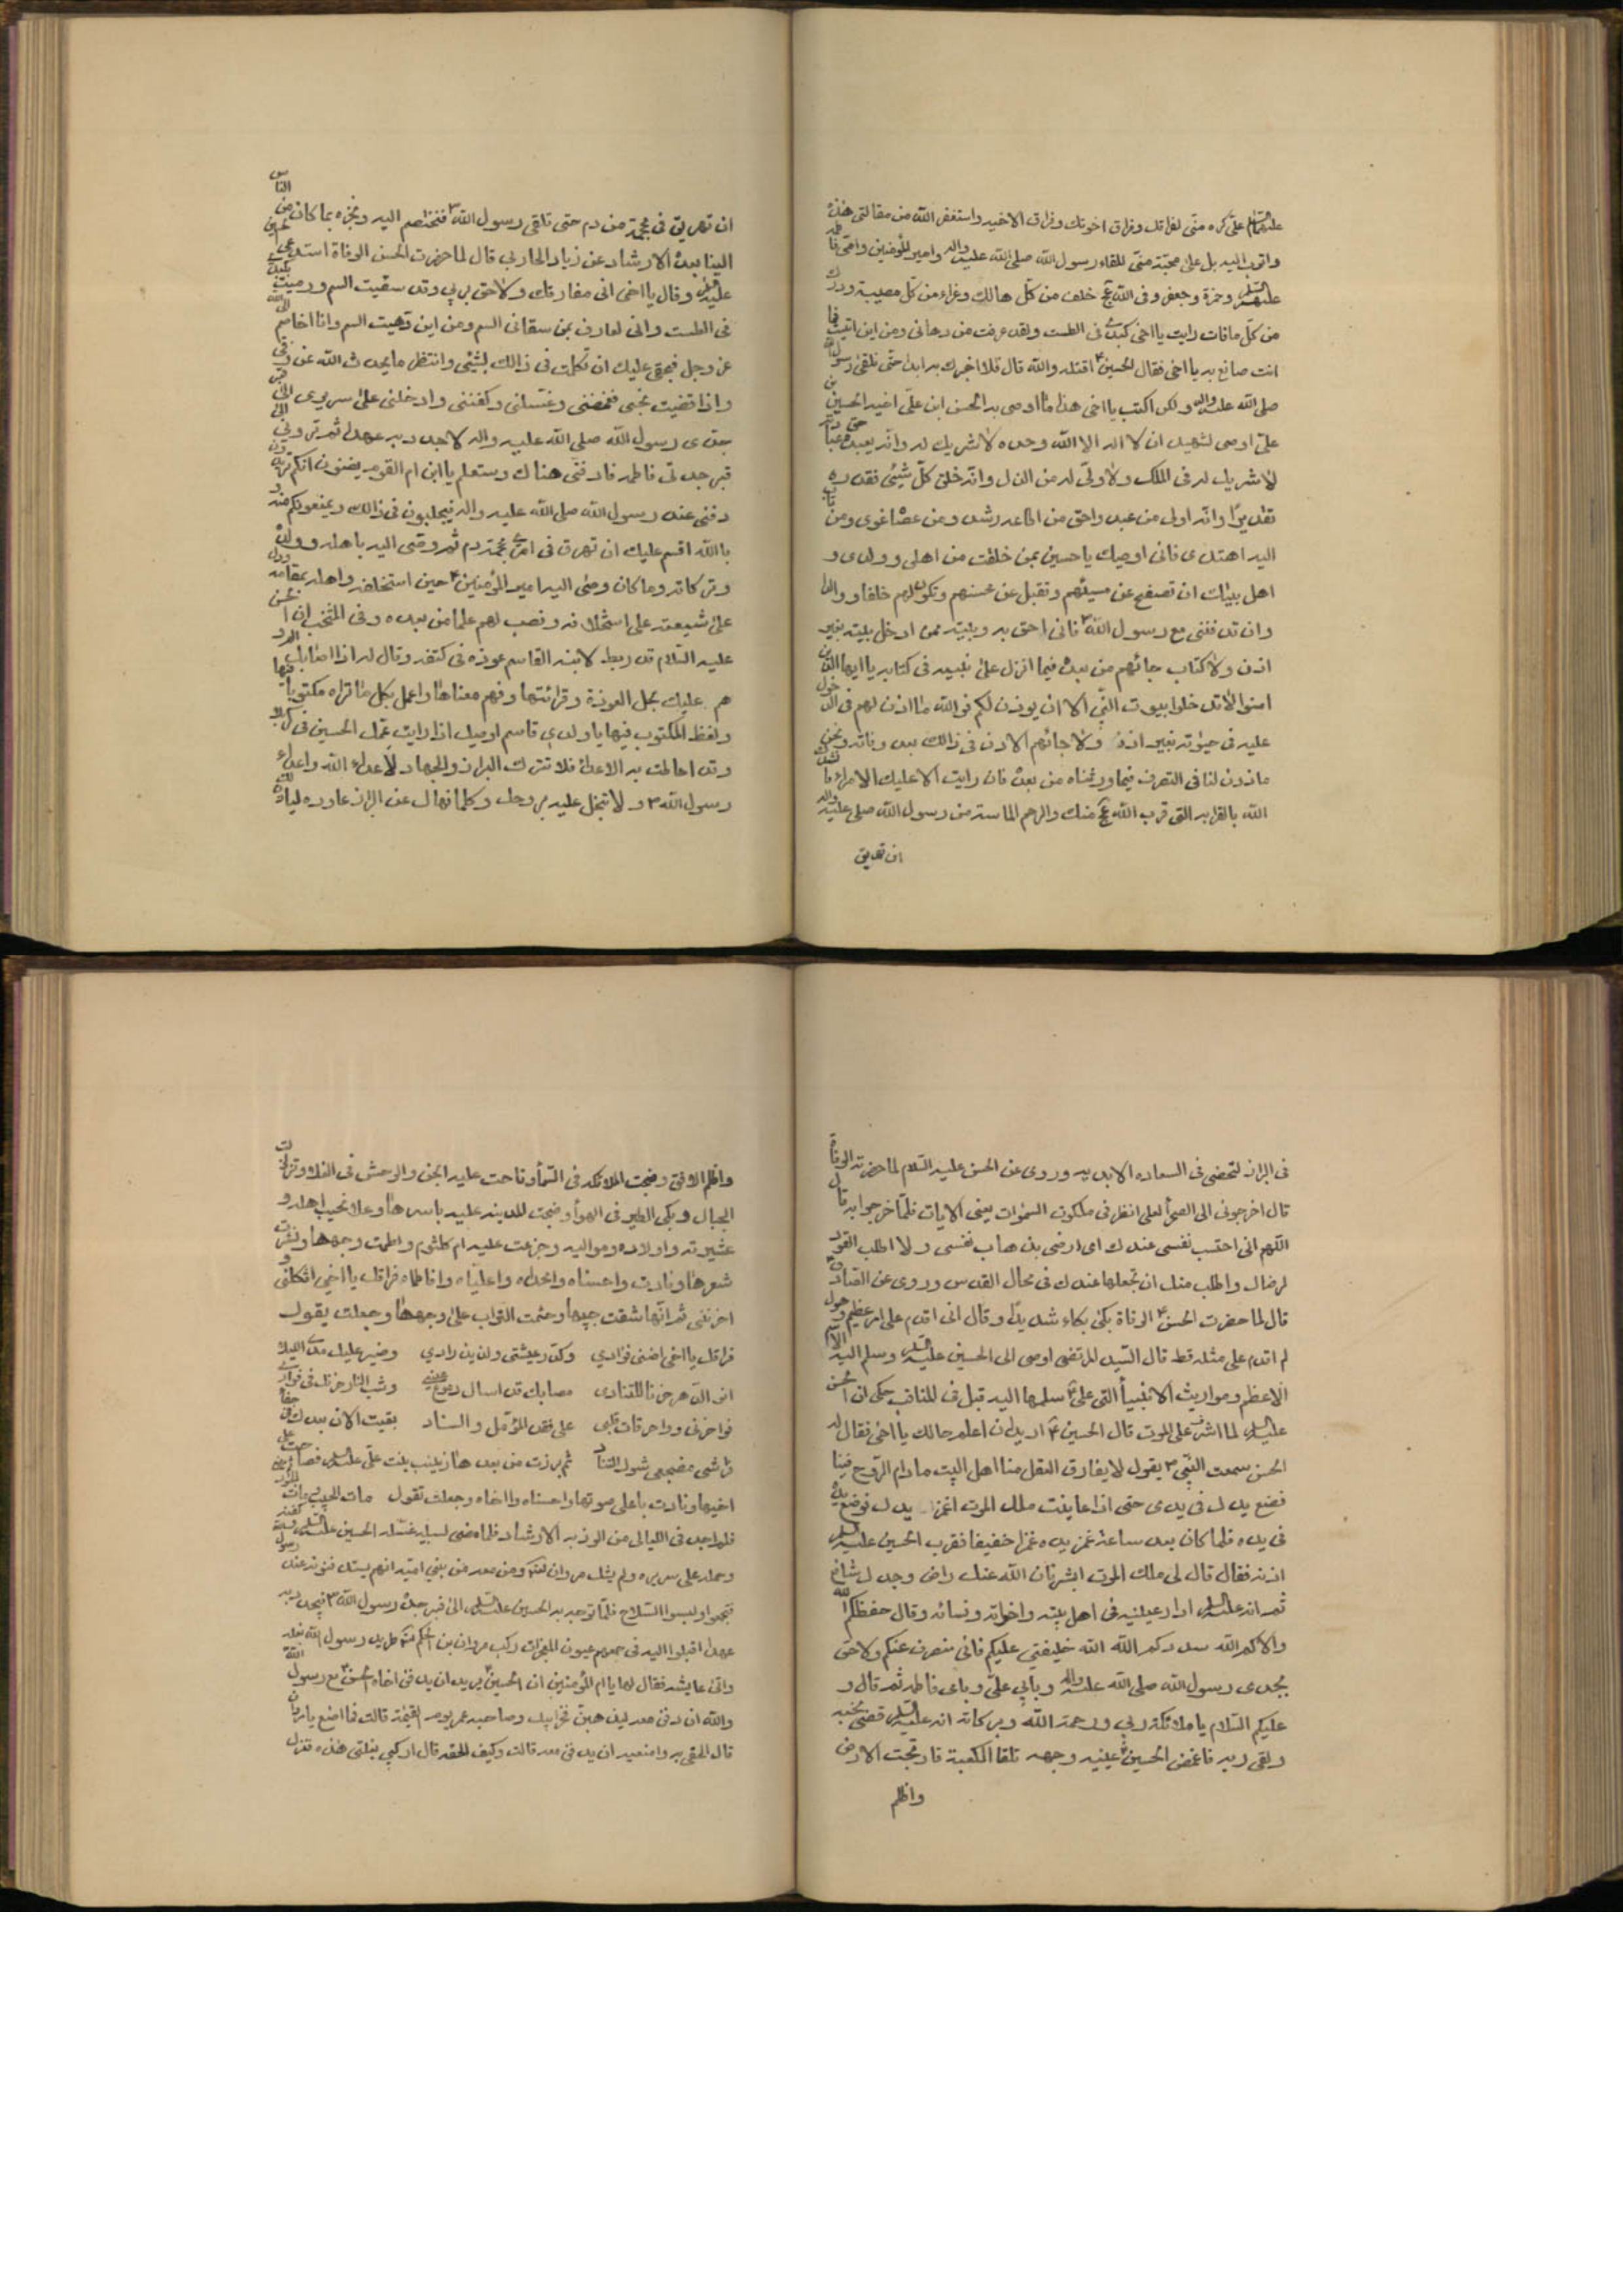 عليهم السلام على كره منّى لفراقك وفراق اخوتك وفراق الاخيه واستغفر الله من مقالتى هذه
واتوب اليه بل على محبّة منّى للقاء رسول الله صلى الله عليه واله وامير المؤمنين وامّى فاطمه
عليهم السلام وحمزة وجعفر وفى الله عج خلف من كلّ هالك وعزاء من كل مصيبة ودرك
من كلّ مافات رايت يا اخى كبدى فى الطست ولقد عرفت من دهانى ومن اين اتيت فما
انت صانع به يا اخى فقال الحسين اقتله والله قال فلا اخبرك به ابدا حتّى نلقى رسول الله
صلى الله عليه واله ولكن اكتب يا اخى هذا ما اوصى به الحسن ابن علىّ اخيه الحسين بن
علىّ اوصى لشهيد ان لا اله الا الله وحده لا شريك له وانّه يعبده حق عبادته
لا شريك له فى الملك ولا ولىّ له من الذل وانّه خلق كلّ شيئى فقدره
تقديرًا وانّه اولى من عبد واحق من اطاعه رشد ومن عصا غوى ومن تاب
اليه اهتدى فانى اوصيك يا حسين بمن خلفت من اهلى وولدى و
اهل بيتك ان تصفح عن مسيئهم وتقبل عن محسنهم وتكون لهم خلفا ووالدا
وان تدفننى مع رسول الله فانى احق به وببيته ممن ادخل بيته بغير
اذن ولا كتاب جائهم من بعده فيما انزل على نبيه فى كتابه يا ايها الذين
امنوا لا تدخلوا بيوت النّبى الا ان يوذن لكم فوالله ما اذن لهم فى الدخول
عليه فى حيوته بغير اذنه ولا جائهم الاذن فى ذالك بعد وفاته ونحن
ماذون لنا فى التصرف فيما ورثناه من بعده فان رايت الا عليك الامراء فانشدك
الله بالقرابه التى قرب الله عج منك والرحم الماسة من رسول الله صلى عليه واله
ان تهريق
ان تهريق فىّ محجمة من دم حتى تلقى رسول الله فنختصم اليه ونخبره بما كان من الناس
الينا بعده الارشاد عن زياد المحاربى قال لما حضرت الحسن الوفاة استدعى الحسين
عليه السلام وقال يا اخى انى مفارقك ولاحق بربى وقد سقيت السم ورميت بكبدى
فى الطست وانى لعارف بمن سقانى السم ومن اين دهيت السم وانا اخاصمه الى الله
عز وجل فبحقى عليك ان تكلمت فى ذالك بشئى وانتظر ما يحدث الله عز ذكره فى
واذا قضيت نحبى فغمضنى وغسلنى وكفننى وادخلنى على سريرى الى قبر
جدى رسول الله صلى الله عليه واله لاجدد به عهدا ثم تردنى الى
قبر جدتى فاطمه فادفنى هناك وستعلم يا ابن ام القوم يضنون انكم تريدون
دفنى عند رسول الله صلى الله عليه واله فيجلبون فى ذالك ويمنعونكم منه
بالله اقسم عليك ان تهرق فى امرى محجمة دم ثم وصى اليه باهله وولده
وتركاته وما كان وصى اليه امير المؤمنين حين استخلفه واهله بمقامه ودل
على شيعته على استخلافه ونصب لهم علما من بعده وفى المنتخب ان الحسن
عليه السّلام قد ربط لابنه القاسم عوذه فى كتفه وقال له اذا اصابك الم و
هم عليك بحل العوذة وقرائتها وفهم معناها واعمل بكل ما تراه مكتوبا فيها
ولفظ المكتوب فيها يا ولدى قاسم اوصيك اذا رايت عمّك الحسين فى كربلا
وقد احاطت به الاعداء فلا تترك البراز والجهاد لاعداء الله واعداء
رسول الله ولا تبخل عليه بروحك وكلما نهاك عن البراز عاوده لياذن لك
فى البراز لتحضى فى السعاده الابديه وروى عن الحسن عليه السّلام لما حضرته الوفاة
قال اخرجونى الى الصحراء لعلى انظر فى ملكوت السموات يعنى الايات فلمّا خرجوا به قال
اللهم انى احتسب نفسى عندك اى ارضى بذهاب نفسى ولا اطلب القود
لرضاك واطلب منك ان تجعلها عندك فى محال القدس وروى عن الصادق
قال لما حضرت الحسن الوفاة بكى بكاء شديدًا وقال انى اقدم على امر عظيم وهول
لم اقدم على مثله قط قال السّيد المرتضى اوصى الى الحسين عليه السلام وسلم اليه الاسم
الاعظم ومواريث الانبياء التى على سلمها اليه قبل فى المناقب حكى ان الحسن
عليه السلام لما اشرف على الموت قال الحسين اريد ان اعلم حالك يا اخى فقال له
الحسن سمعت النّبى يقول لا يفارق العقل منا اهل البيت ما دام الرّوح فينا
فضع يدك فى يدى حتى اذا عاينت ملك الموت اغمز يدك فوضع يده
فى يده فلما كان بعد ساعة غمز يده غمزا خفيفا فقرب الحسين عليه السلام
اذنه فقال قال لى ملك الموت ابشر فان الله عنك راض وجدك شافع
ثم انه عليه السلام ادار عينيه فى اهل بيته واخواته ونسائه وقال حفظكم الله
والله الله خليفتى عليكم فانى منصرف عنكم ولاحق
بجدى رسول الله صلى الله عليه واله وبابى علىّ وبامى فاطمه ثم قال و
عليكم السّلام يا ملائكة ربى ورحمة الله وبركاته انه عليه السلام قضى نحبه
ولقى ربه فاغمض الحسين عينيه وجهه تلقا الكعبة فارتجت الارض
واظلم
واظلم الافق وضجت الملائكه فى السّماء وناحت عليه الجن والوحش فى الفلا وتزلزلت
الجبال وبكى الطير فى الهواء وضجت المدينه عليه باسرها وعلا نحيب اهله و
عشيرته واولاده ومواليه وجزعت عليه ام كلثوم ولطمت وجهها ونشرت
شعرها ونادت واحسناه وامحمداه واعلياه وافاطماه فراقك يا اخى اثكلنى و
احزننى ثم انّها شقت جيبها وحثت التراب على وجهها وجعلت يقول
فراقك يا اخى اضنى فؤادى وكدر عيشتى ولذيذ زادى وصير عليك مدى الليالى
مصابك قد اسال دموع عينى وشب النار حزنك فى فؤادى
فواحزنى وواحرقات قلبى على فقد المؤمل والسناد بقيت الان بعدك فى
فراشى مضجعى شوك القتاد ثم برزت من بعدها زينب بنت علىّ عليه السلام فصاحت على
اخيها ونادت باعلى صوتها واحسناه وااخاه وجعلت تقول مات الحبيب ومات
فى الليالى من الارشاد فلما مضى لسبيله غسّله الحسين عليه السلام وكفنه
وحمله على سريره ولم يشك مروان لعنه ومن معه من بنى اميه انهم يستدفنونه عند رسول
فتجمعوا ولبسوا السّلاح فلمّا توجه به الحسين عليه السلام الى قبر جده رسول الله ليجدد به
عهدا اقبلوا اليه فى جمعهم ركب مروان بن الحكم لعنه رسول الله
واتى عايشه فقال لها يا ام المؤمنين ان الحسين يريد ان يدفن اخاه الحسن مع رسول الله
والله ان دفن معه ليذهبن فخر ابيك وصاحبه عمر يوم القيمة قالت فما اصنع يا مروان
قال الحقى به وامنعيه ان يدفن معه قالت وكيف الحقه قال اركبى بغلتى هذه فنزل